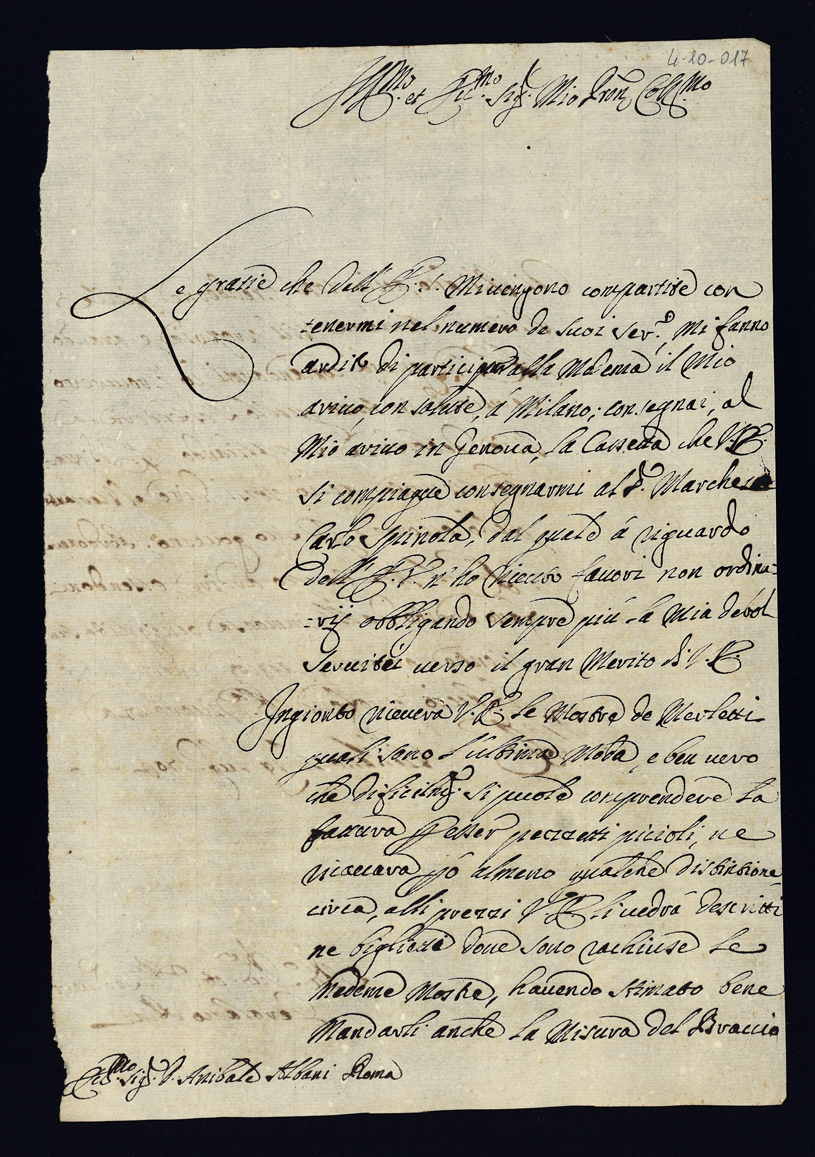 4-20-017
Ill.mo et Ecc.mo Sig. Mio Pron. Coll.mo
Le grazie che dall' E. V. Mi vengono compartite con
tenermi nel numero de suoi Ser.ri, Mi fanno
ardito di participar alla Medema il Mio
arivo con salute, a Milano; consegnai, al
Mio arivo in Genova, la Cassetta che V. E.
si compiaque consegnarmi al S. Marchese
Carlo Spinola, dal quale à riguardo
dell' E. V. n' ho riceuto favori non ordina=
=rij obbligando sempre più la Mia devot
servitù verso il gran Merito di V. E.
Ingionto riceverà V. E. le Mostre de Merletti
quali sono l'ultima Moda, e ben vero
che dificilm. si puole comprendere la
fattura p esser pezzetti picioli, ne
ricavarà però almeno qualche distintione
circa, alli prezzi V. E. li vedrà descritti
ne biglietti dove sono rachiuse le
Medeme Mostre, havendo stimato bene
Mandarli anche la Misura del Braccio
Ecc.mo Sig. D. Anibale Albani Roma